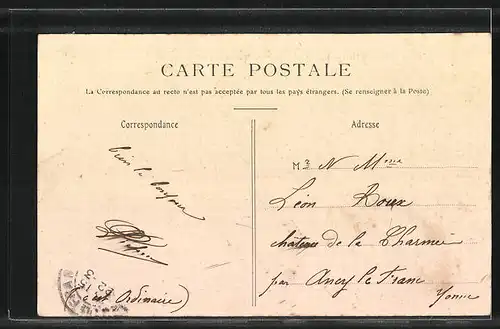 CARTE POSTALE
La Correspondance au recto n'est pas acceptée par tous les pays étrangers. (Se renseigner à la Poste)
Correspondance
Adresse
bien le bonjour
(est Ordinaire)
Mr N Mme
Léon Roux
château de la Charmée
par Ancy le Franc
Yonne